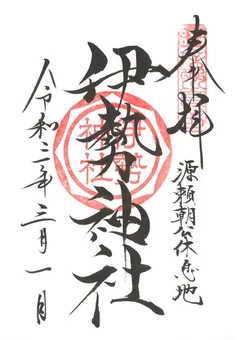 奉拝
源頼朝公休息地
伊勢神社
伊勢
神社
令和二年三月一日